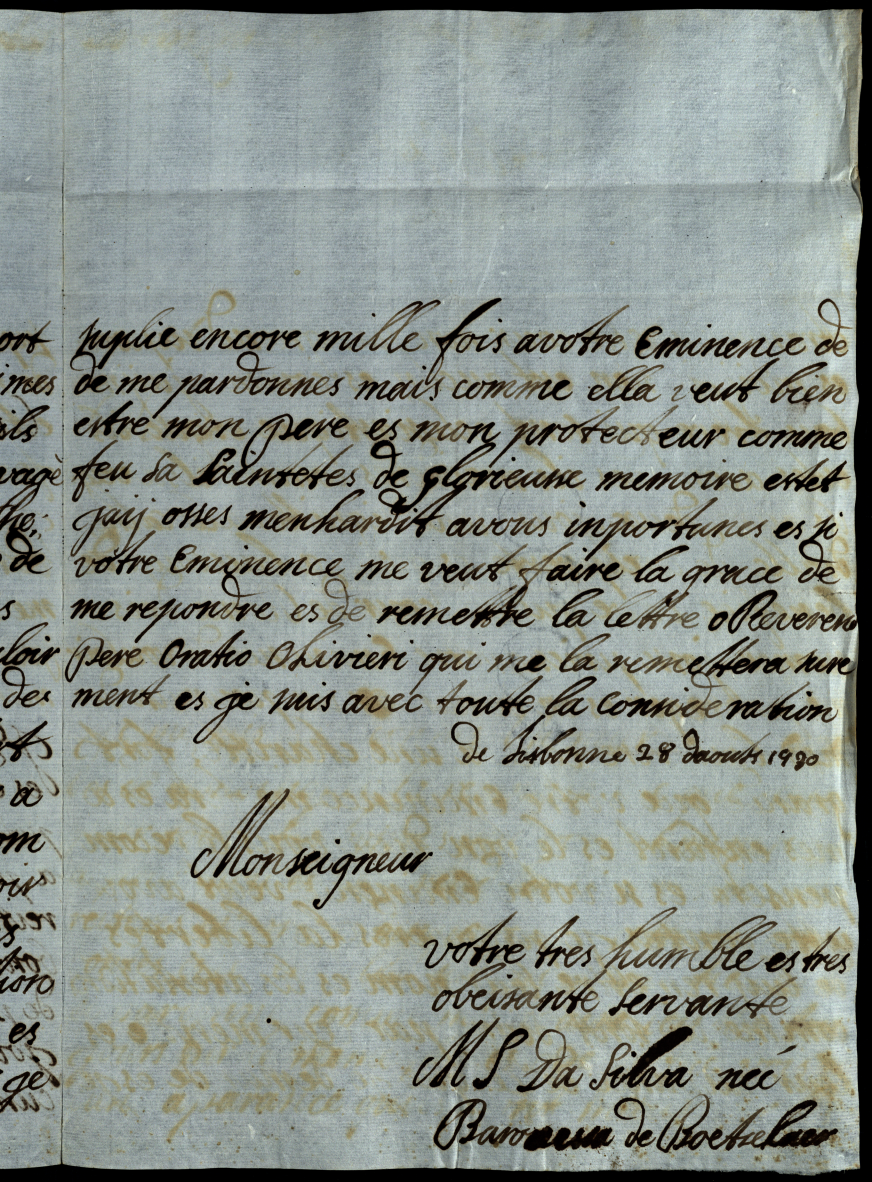 ort
imes
sils
vagé
de
s
loir
des
a
om
oir
es
je
suplie encore mille fois avotre Eminence de
de me pardonnes mais comme ella veut bien
estre mon pere es mon protecteur comme
feu sa Saintetes de glorieusse memoire estet
jaij osses menhardit avous inportunes es si
votre Eminence me veut faire la grace de
me repondre es de remettre la lettre o Reverend
Pere Oratio Olivieri qui me la remettera sure
ment es je suis avec toute la consideration
de Lisbonne 28 daouts
Monseigneur
votre tres humble es tres
obeisante Servante
M S Da Silva neé
Baronessa de Boetzelaer